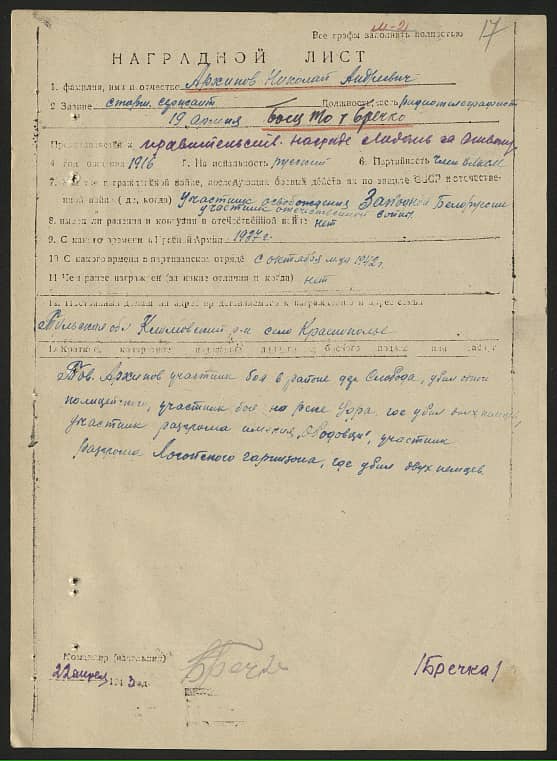 м-21
17
Все графы заполнить полностью
НАГРАДНОЙ ЛИСТ
1. фамилия, имя и отчество Архипов Николай Андреевич
2 Звание старш. сержант Должность, часть радиотелеграфист
19 армия Боец т о т Бречко
Представляется к правительств. награде Медаль за отвагу
4 год рождения 1916 5. Национальность русский 6. Партийность член ВЛКСМ
7. Участие в гражданской войне, последующих боевых действиях по защите СССР и отечестве-
ной войне (где, когда) Участник освобождения Западной Белоруссии
участник отечественной войны
8. имеет ли ранения и контузии в отечественной войне нет
9. С какого времени в Красной Армии 1937 г.
10. С какого времени в партизанском отряде с октября м-ца 1942 г.
11 Чем ранее награжден (за какие отличия и когда) нет
12. Постоянный домашний адрес представляемого к награждению и адрес семьи
Тульская обл Климовский р-н село Краснополье
13 Краткое, конкретное изложение личного боевого подвига или заслуг
Тов. Архипов участник боя в районе дер Слобода, убил одного
полицейского, участник боя на реке где убил двух немцев,
участник разгрома имения участник
разгрома Логойского гарнизона, где убил двух немцев.
Командир (начальник)
Бречко /Бречка/
22 апрел 1943 год.